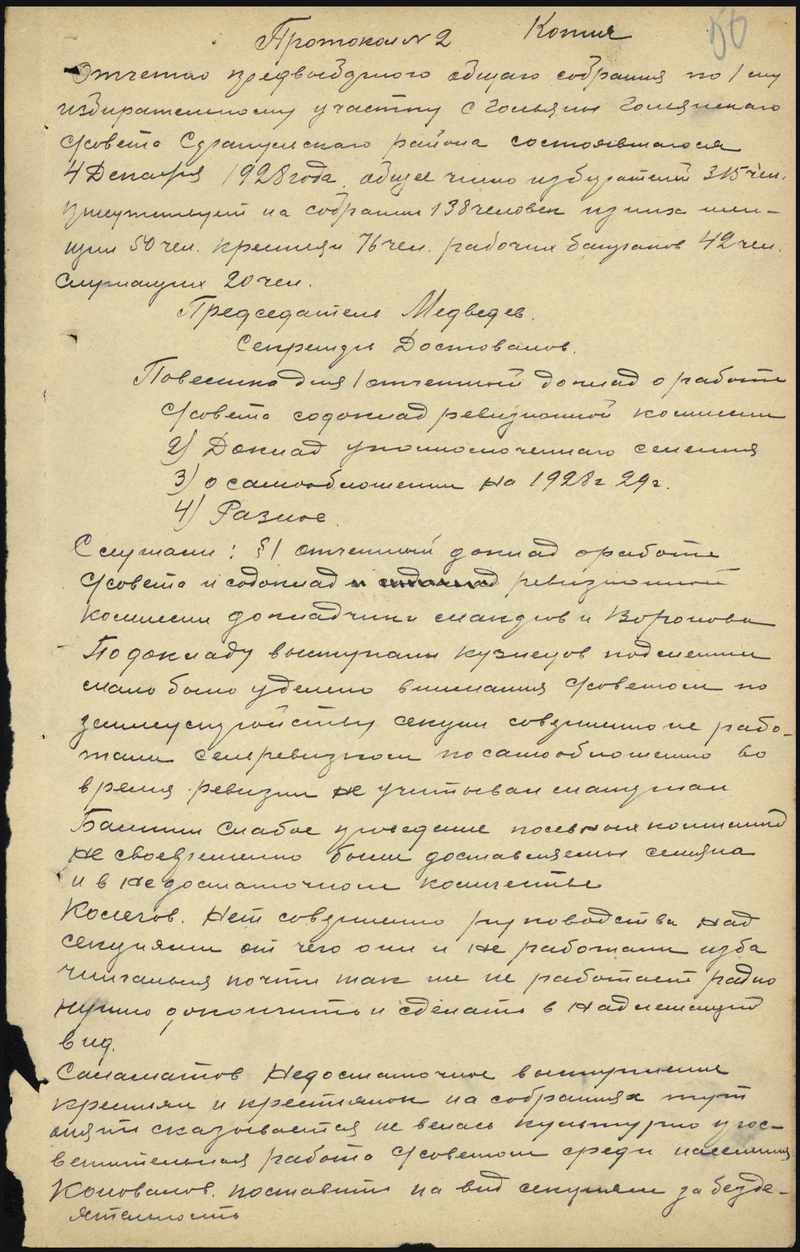 Протокол № 2 Копия 56
Отчетно предвыборного общаго собрания по 1 му
избирательному участку с Гольяны Гольянскаго
с/совета Сарапульского района состоявшагося
4 Декабря 1928 года, общее число избирателей 315 чел.
присутствующей на собрании 138 человек из них жен-
щин 50 чел. крестьян 76 чел. рабочих батраков 42 чел.
Служащих 20 чел.
Председатель Медведев.
Секретарь Достовалов.
Повестка дня 1 отчетный доклад о работе
с/совета содоклад ревизионной комиссии
2) Доклад уполномоченнаго селения
3) о самообложении на 1928 г 29 г.
4) Разное
Слушали: § 1 отчетный доклад о работе
с/совета и содоклад ревизионной
комиссии докладчики и Воронова
По докладу выступали Кузнецов подметил
мало было уделено внимания с/советом по
землеустройству секции совершенно не рабо-
тали селеревизком по самообложению во
время ревизии не учитывал
Балтин Слабое проведение посевной компании
не своевременно были доставляемы семяна
и в недостаточном количестве
Колегов. Нет совершенно руководства над
секциями от чего они и не работали изба
читальня почти так же не работает радио
нужно докончить и сделать в надлежащий
вид.
Саламатов Недостаточное выступление
крестьян и крестьянок на собраниях тут
опять сказывается не велась культурно прос-
ветительная работа с/советом среди населения
Коновалов. поставить на вид секциям за безде-
ятельность